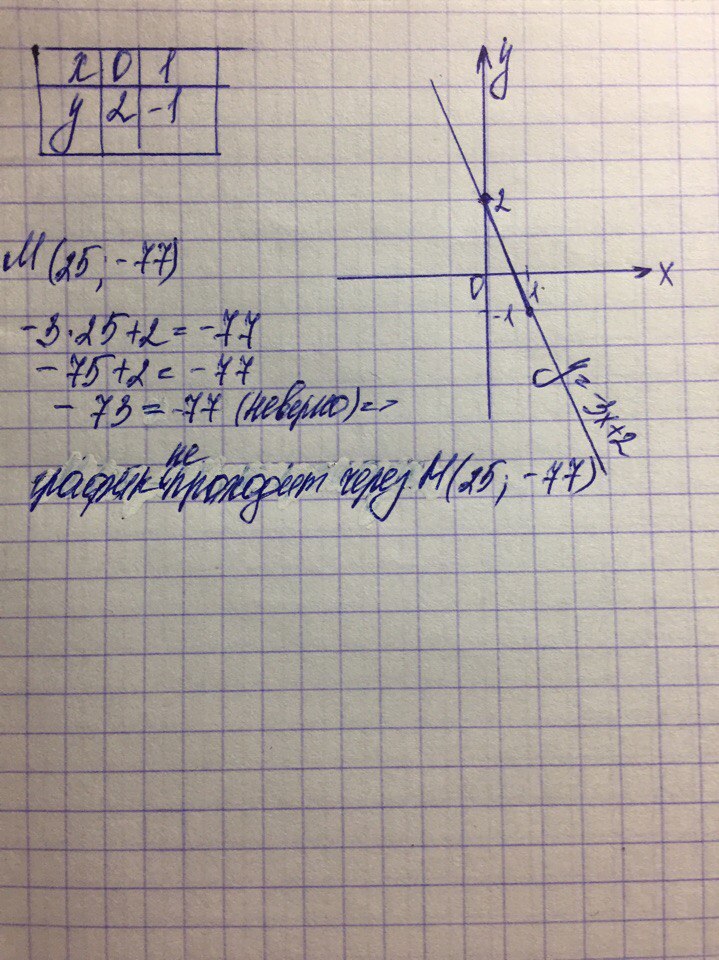 x 0 1
y 2 -1
y
2
x
0
1
-1
y=-3x+2
М(25; -77)
-3·25+2 = -77
-75+2 = -77
-73 = -77 (неверно) =>
график не проходит через М(25; -77)